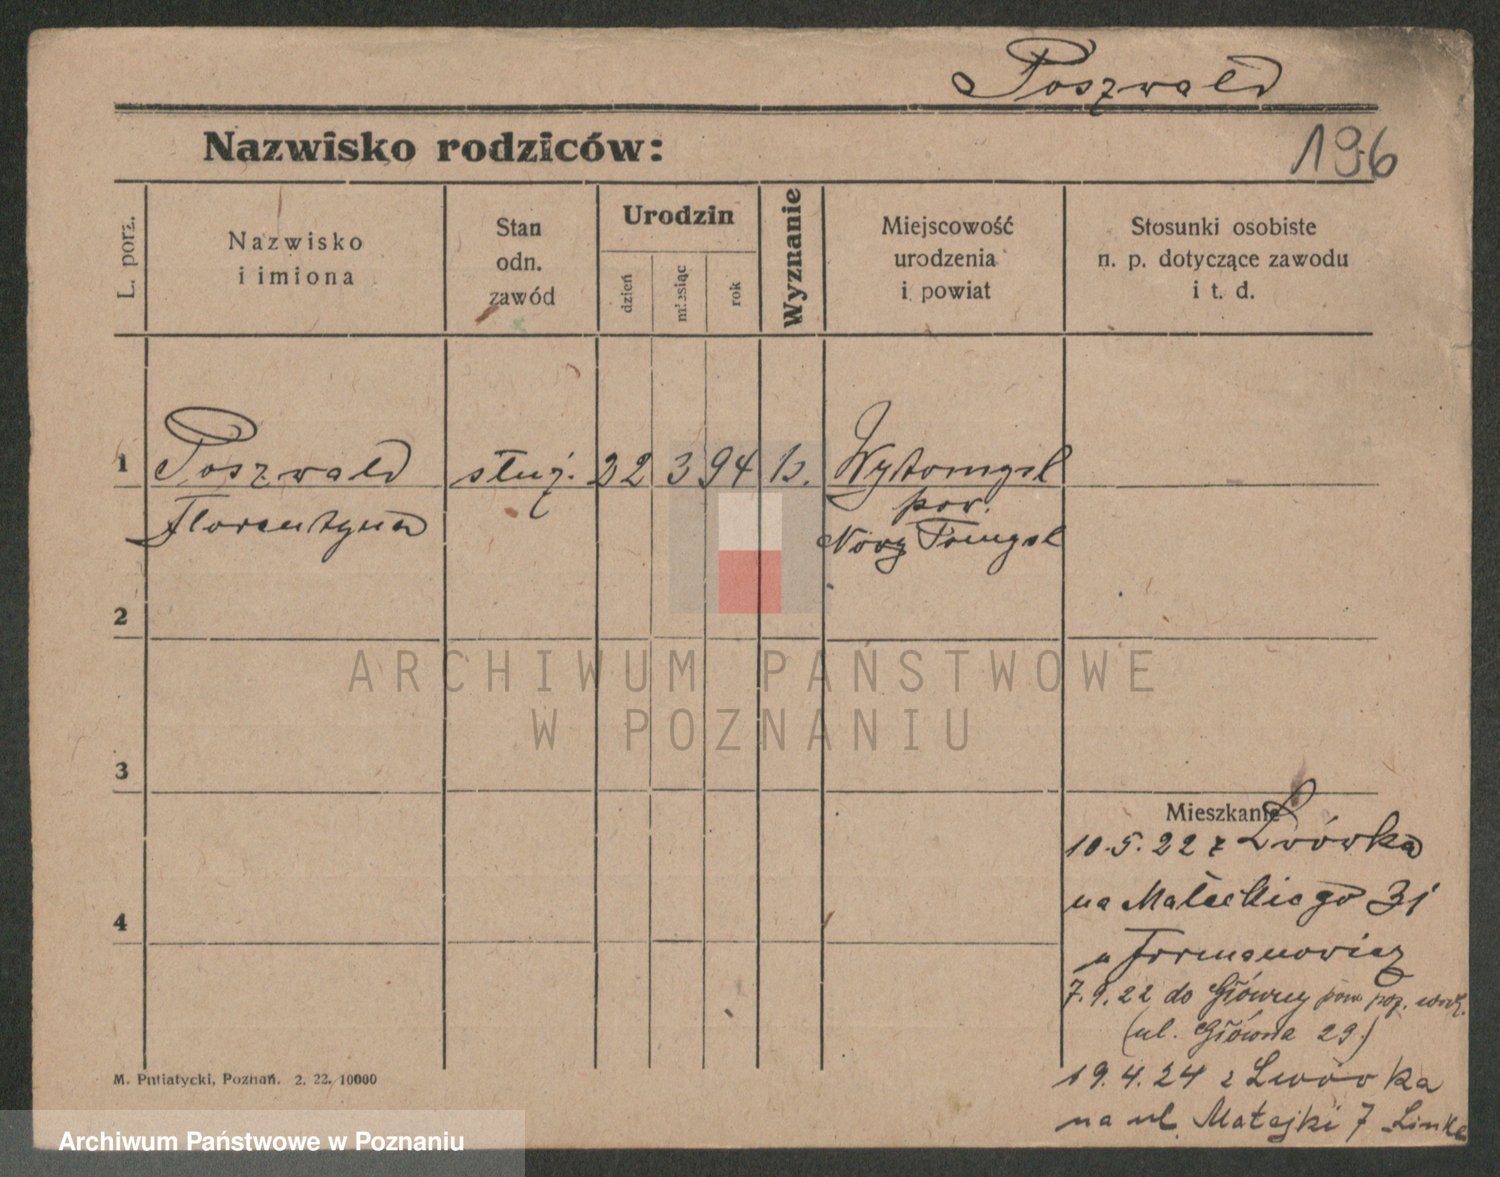 Poszwald
196
Nazwisko rodziców:
L. porz.
Nazwisko
i imiona
Stan
odn.
zawód
Urodzin
dzień
miesiąc
rok
Wyznanie
Miejscowość
urodzenia
i powiat
Stosunki osobiste
n. p. dotyczące zawodu
i t. d.
1 Poszwald służ. 22 3 94 Wytomyśl
Florentyna pow.
Nowy Tomysl
2
3
4
ARCHIWUM PAŃSTWOWE
W POZNANIU
Mieszkanie
10.5.22 z Lwówka
na Małeckiego 31
u Formanowicz
7.9.22 do Główny pow. poz. wsch.
(ul. Główna 29.)
19.4.24 z Lwówka
na ul. Matejki 7 Linke
M. Putiatycki, Poznań. 2. 22. 10000
Archiwum Państwowe w Poznaniu